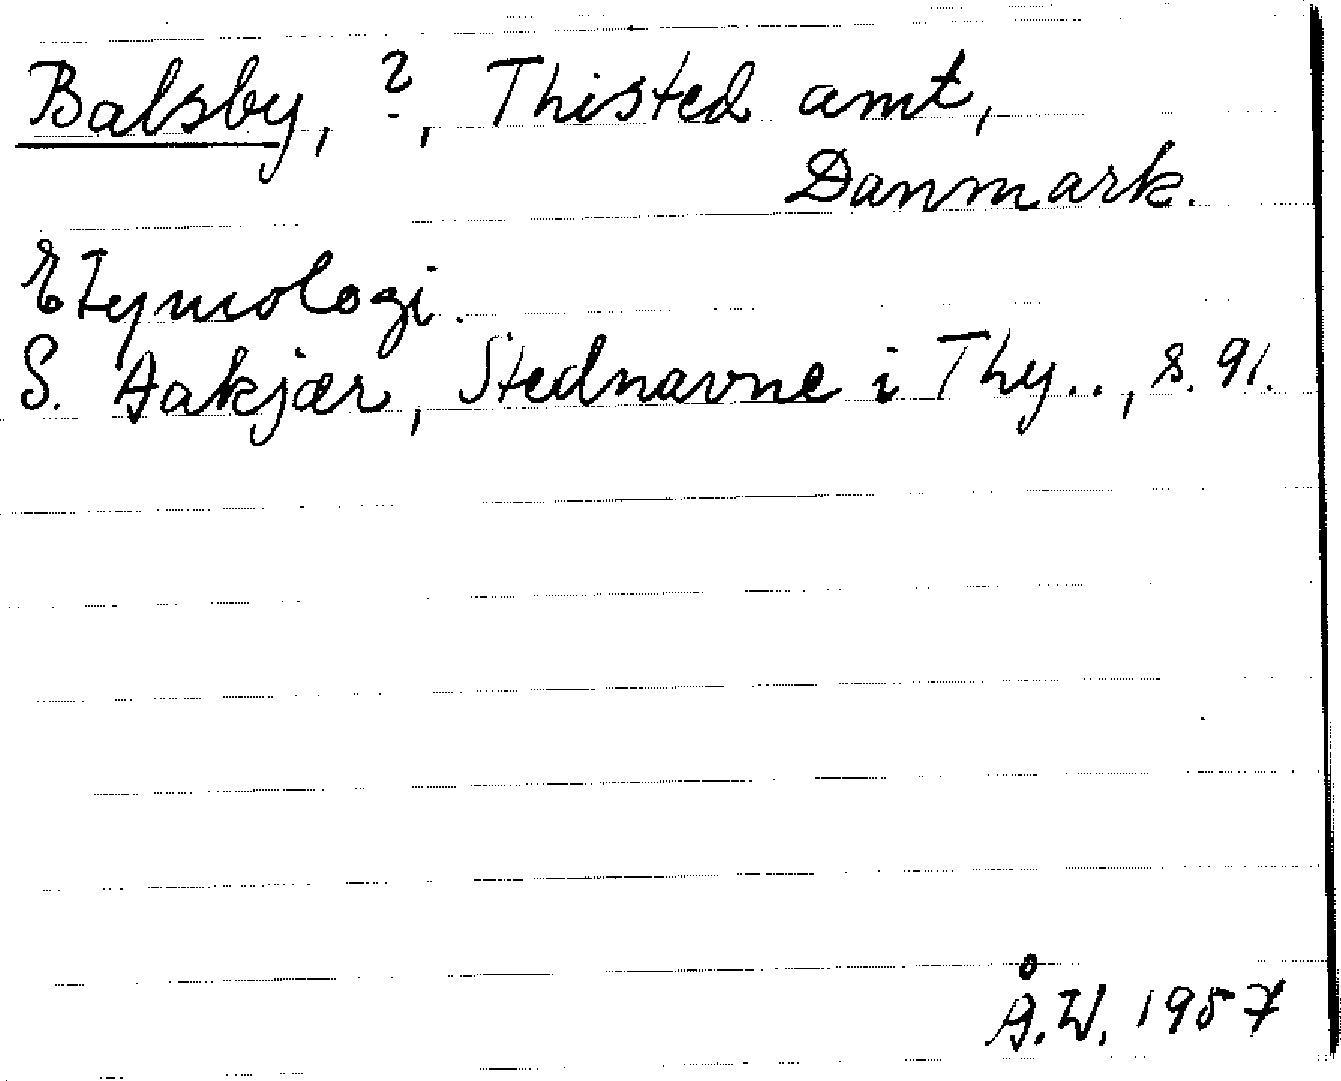 Balsby, ?, Thisted amt,
Danmark.
Etymologi.
S. Aakjær, Stednavne i Thy.., s. 91.
Å.W. 1957